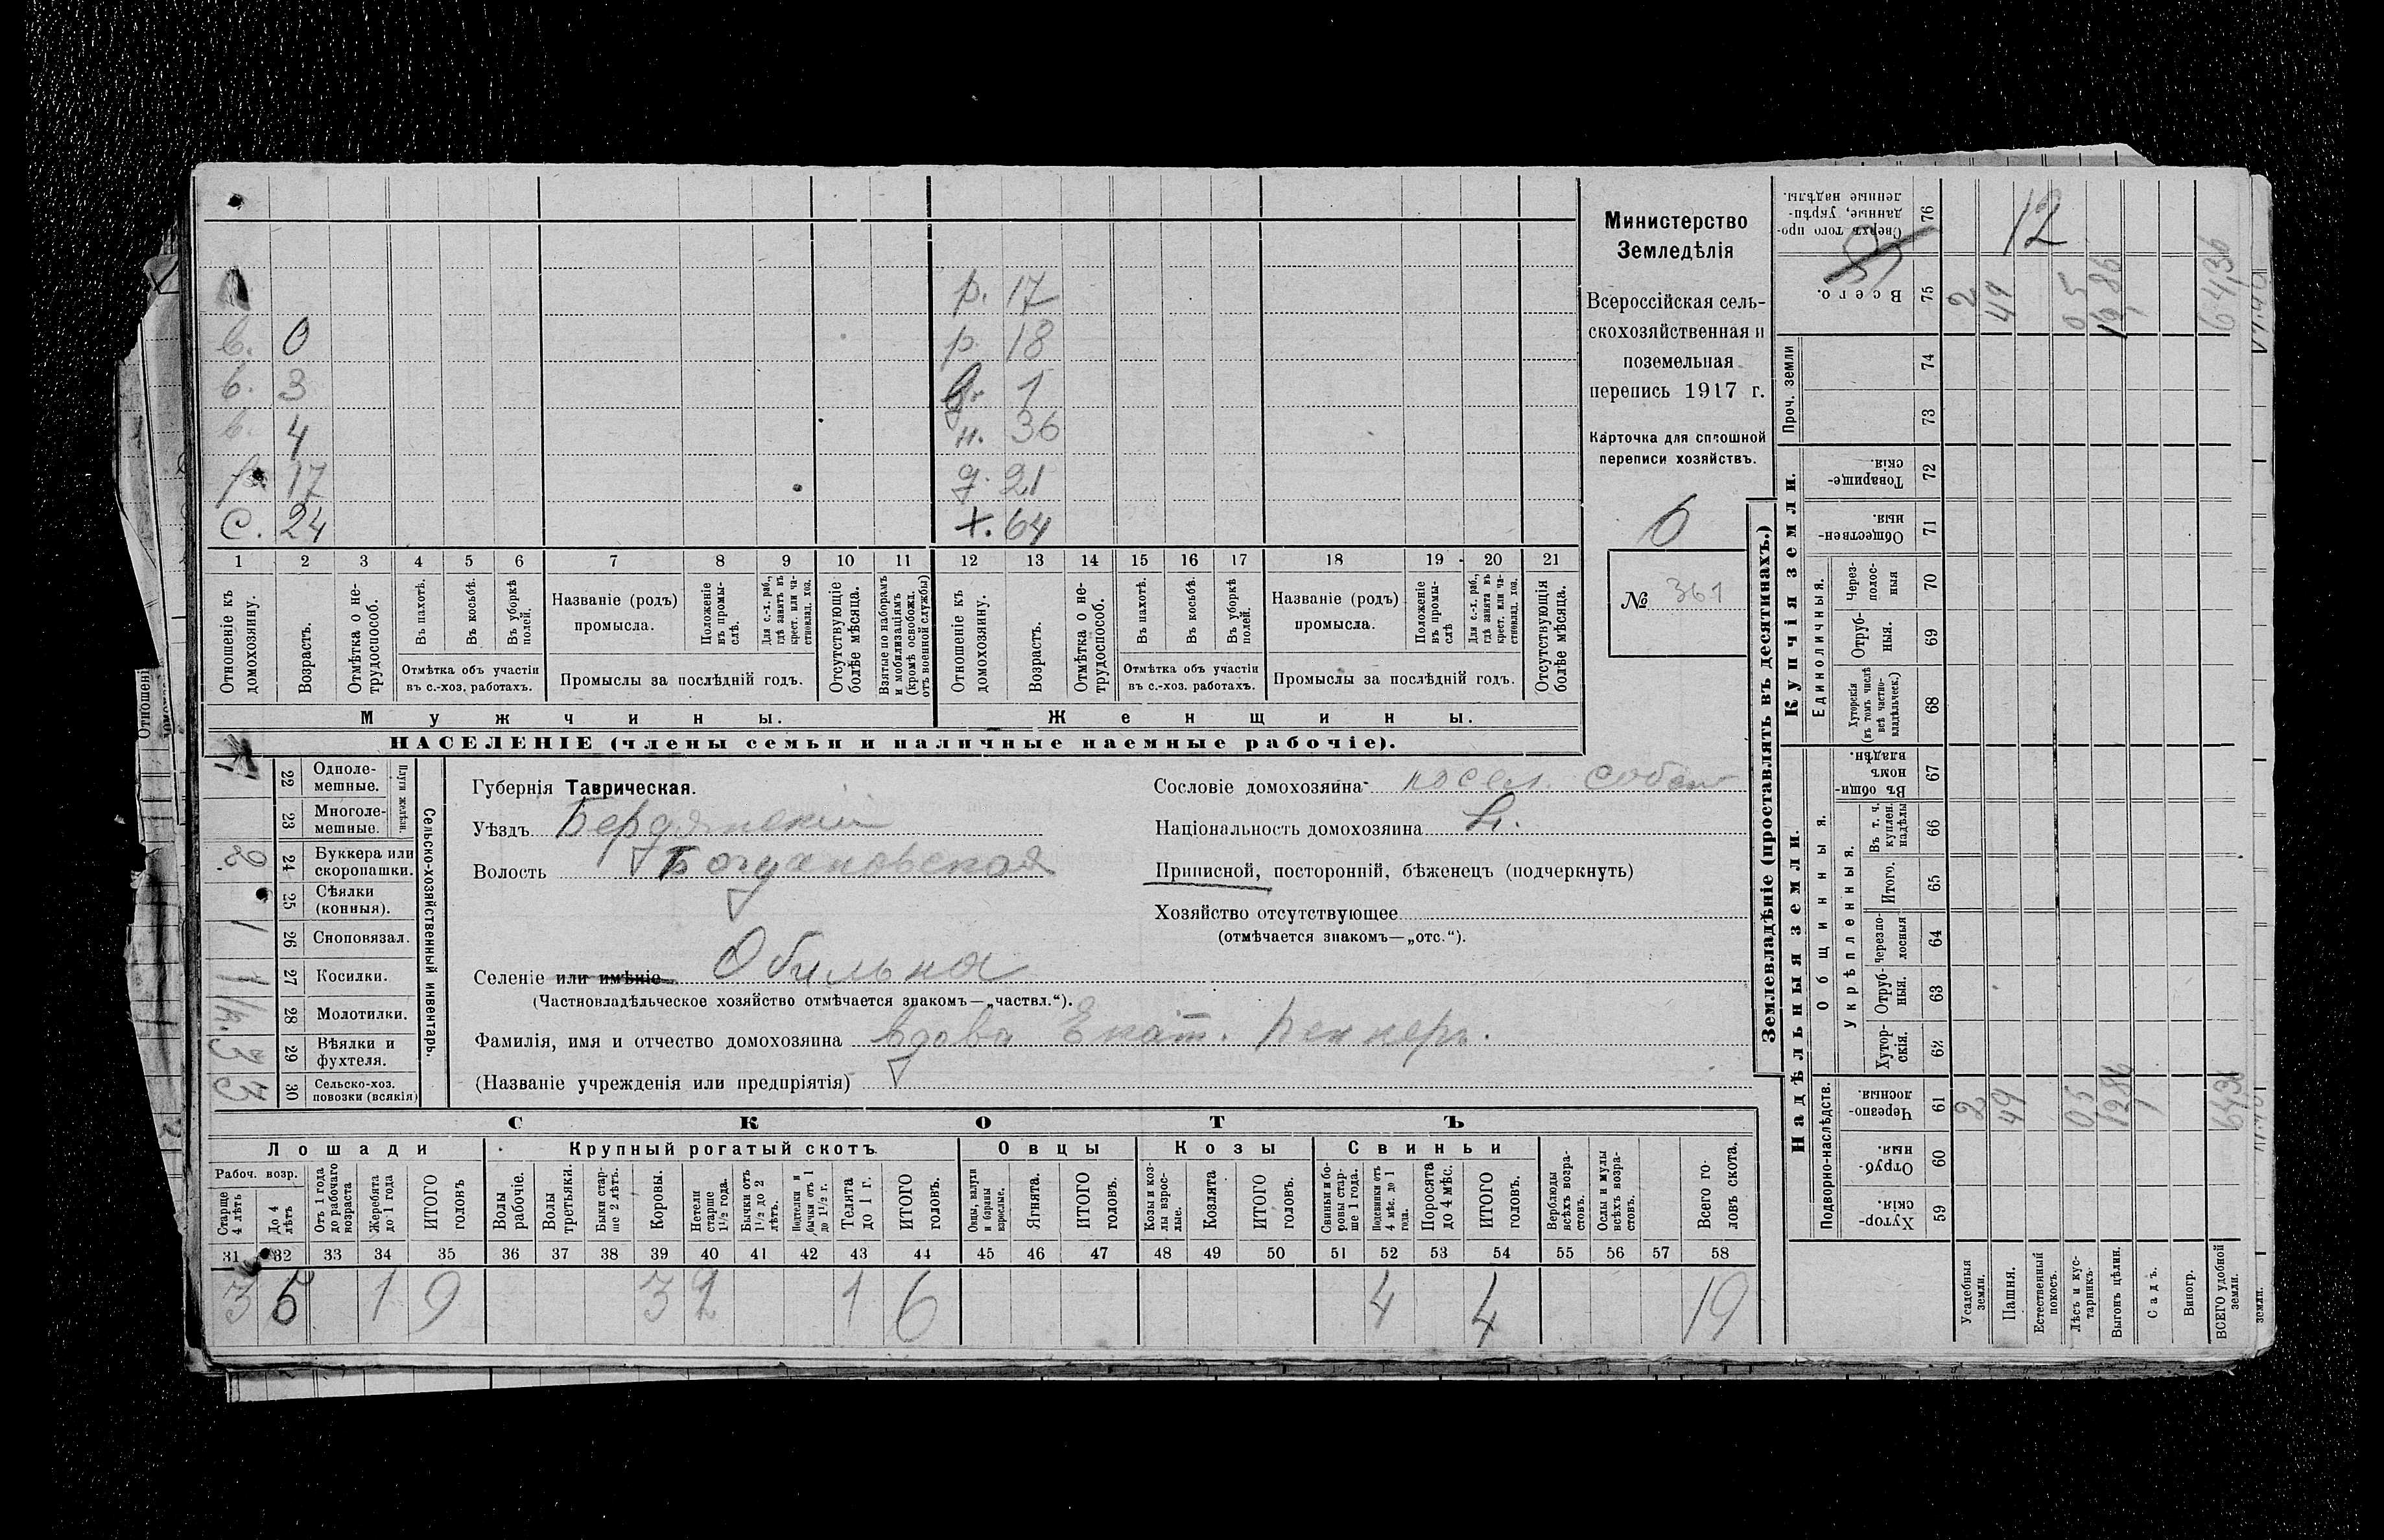 р. 17
в. 0 р. 18
в. 3 1
в. 4 н. 36
р. 17 д. 21
С. 24 х. 64
1 2 3 4 5 6 7 8 9 10 11 12 13 14 15 16 17 18 19 20 21
Отношеніе къ домохозяину.
Возрастъ.
Отмѣтка о нетрудоспособ.
Въ пахотѣ.
Въ косьбѣ.
Въ уборкѣ полей.
Отмѣтка объ участіи въ с.-хоз. работахъ.
Названіе (родъ) промысла.
Положеніе въ промыслѣ.
Для с.-х. раб., гдѣ занятъ въ крест. или частновлад. хоз.
Промыслы за послѣдній годъ.
Отсутствующіе болѣе мѣсяца.
Взятые по наборамъ и мобилизаціямъ (кромѣ освобожд. отъ военной службы)
Отношеніе къ домохозяину.
Возрастъ.
Отмѣтка о нетрудоспособ.
Въ пахотѣ.
Въ косьбѣ.
Въ уборкѣ полей.
Отмѣтка объ участіи въ с.-хоз. работахъ.
Названіе (родъ) промысла.
Положеніе въ промыслѣ
Для с.-х. раб., гдѣ занята въ крест. или частновлад. хоз.
Промыслы за послѣдній годъ.
Отсутствующія болѣе мѣсяца.
Мужчины. Женщины.
НАСЕЛЕНІЕ (члены семьи и наличные наемные рабочіе).
Министерство
Земледѣлія
Всероссійская сель-
скохозяйственная и
поземельная
перепись 1917 г.
Карточка для сплошной
переписи хозяйствъ.
6
№ 361
Сельско-хозяйственный инвентарь.
Плуги желѣзн.
22 Одноле-
мешные.
23 Многоле-
мешные.
24 Буккера или
скоропашки.
25 Сѣялки
(конныя).
1 26 Сноповязал.
27 Косилки.
28 Молотилки.
29 Вѣялки и
фухтеля.
30 Сельско-хоз.
повозки (всякія)
Губернія Таврическая.
Уѣздъ Бердянскій
Волость Богдановская
Селеніе или имѣніе Обильна
(Частновладѣльческое хозяйство отмѣчается знакомъ—„частвл.“).
Фамилія, имя и отчество домохозяина вдова Екат. Беккеръ.
(Названіе учрежденія или предпріятія)
Сословіе домохозяина посел. собст
Національность домохозяина
Приписной, посторонній, бѣженецъ (подчеркнуть)
Хозяйство отсутствующее
(отмѣчается знакомъ—„отс.“).
СКОТЪ
Лошади Крупный рогатый скотъ Овцы Козы Свиньи
Рабоч. возр.
Старше 4 лѣтъ
До 4 лѣтъ
Отъ 1 года до рабочаго возраста
Жеребята до 1 года
ИТОГО головъ
Волы рабочіе.
Волы третьяки.
Быки старше 2 лѣтъ.
Коровы.
Нетели старше 1½ года.
Бычки отъ 1½ до 2 лѣтъ.
Подтелки и бычки отъ 1 до 1½ г.
Телята до 1 г.
ИТОГО головъ.
Овцы, валухи и бараны взрослые.
Ягнята.
ИТОГО головъ.
Козы и козлы взрослые.
Козлята
ИТОГО головъ.
Свиньи и боровы старше 1 года.
Подсвинки отъ 4 мѣс. до 1 года.
Поросята до 4 мѣс.
ИТОГО головъ.
Верблюды всѣхъ возрастовъ.
Ослы и мулы всѣхъ возрастовъ.
Всего головъ скота.
31 32 33 34 35 36 37 38 39 40 41 42 43 44 45 46 47 48 49 50 51 52 53 54 55 56 57 58
3 5 1 9 3 2 1 6 4 4 19
Землевладѣніе (проставлять въ десятинахъ.)
Надѣльныя земли. Купчія земли. Проч. земли
Подворно-наслѣдств.
Общинныя.
Укрѣпленныя.
Единоличныя.
Хуторскія. 59
Отрубныя. 60
Черезполосныя. 61
Хуторскія. 62
Отрубныя. 63
Черезполосныя 64
Итого. 65
Въ т. ч. куплен. надѣлы 66
Въ общинномъ владѣн. 67
Хуторскія (въ томъ числѣ всѣ частновладѣльческ.) 68
Отрубныя. 69
Черезполосныя 70
Общественныя. 71
Товарищескія. 72
73
74
Всего. 75
Сверхъ того проданные, укрѣпленные надѣлы. 76
Усадебныя земли. 2 2
Пашня. 49 49 12
Естественный покосъ.
Лѣсъ и кустарникъ. 05 05
Выгонъ цѣлин. 12,86
Садъ.
Виногр.
ВСЕГО удобной земли. 64,36 64,36
земли.